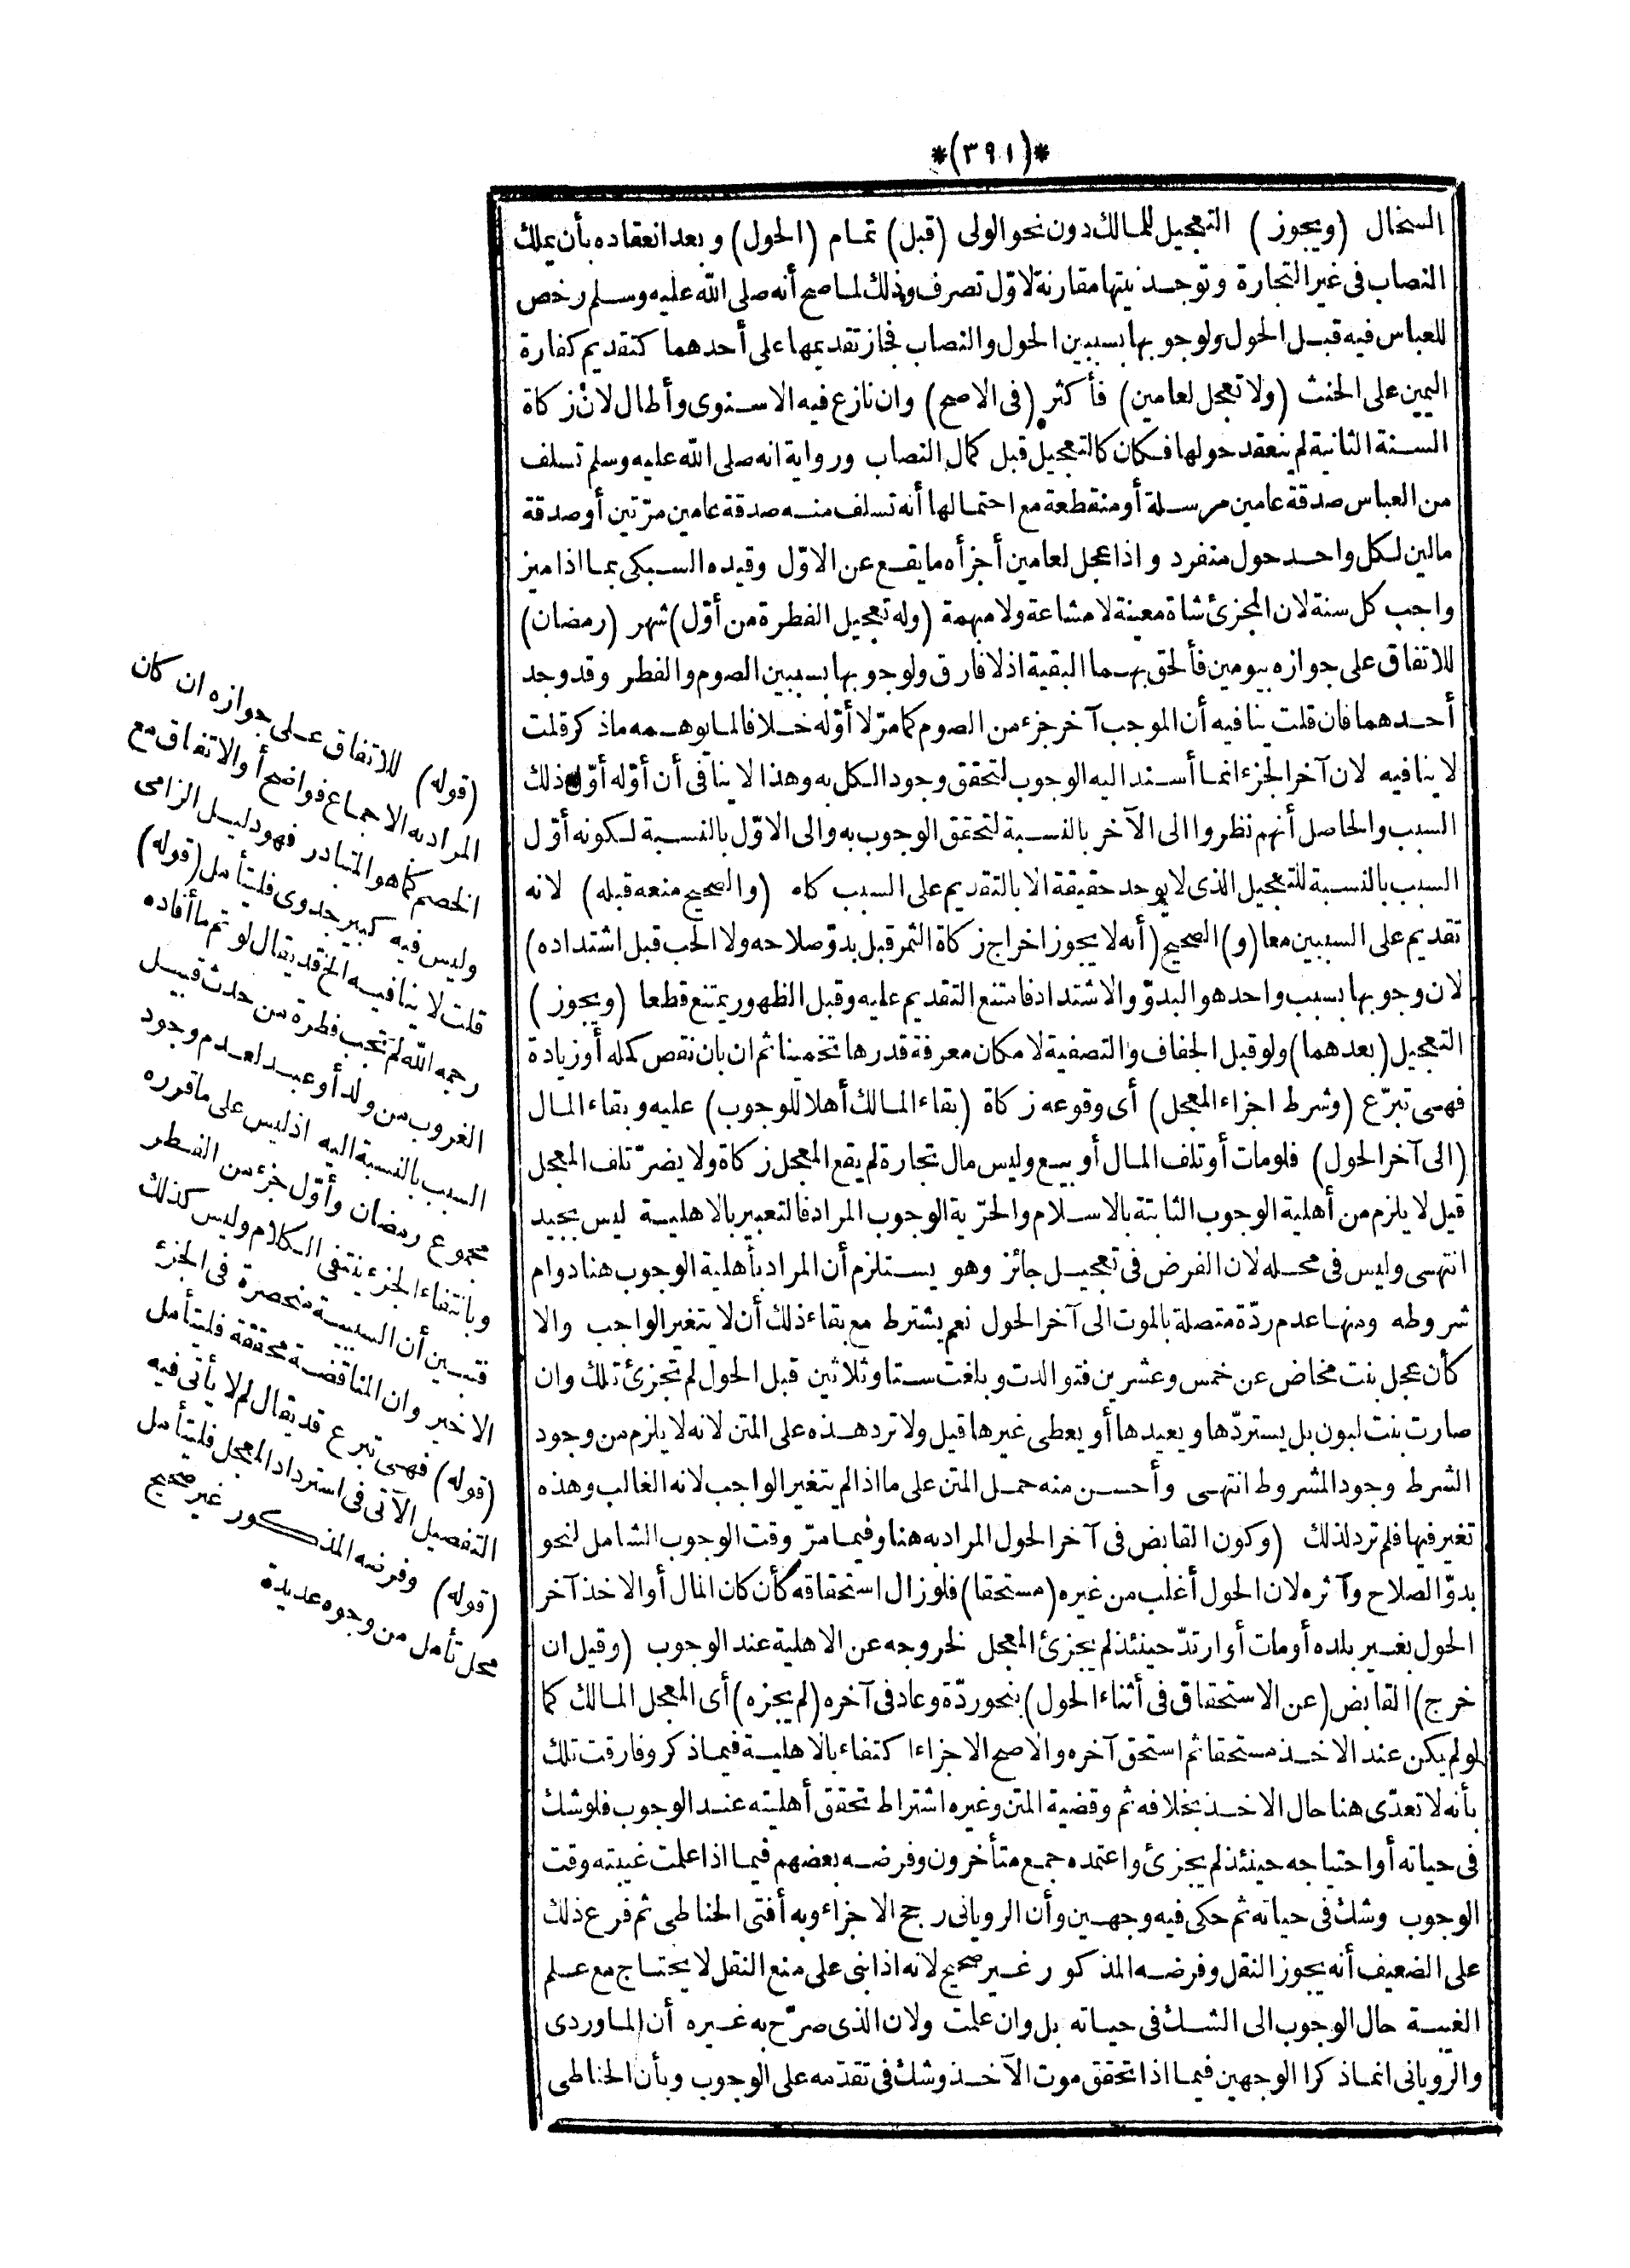 *(٣٩١)*
السخال (ويجوز) التعجيل للمالك دون نحو الولى (قبل) تمام (الحول) وبعد انعقاده بأن يملك
النصاب فى غير التجارة وتوجد نيتها مقارنة لاوّل تصرف وذلك لما صح أنه صلى الله عليه وسلم رخص
للعباس فيه قبل الحول ولوجوبها بسببين الحول والنصاب فجاز تقديمها على أحدهما كتقديم كفارة
اليمين على الحنث (ولا تعجل لعامين) فأكثر (فى الاصح) وان نازع فيه الاسنوى وأطال لان زكاة
السنة الثانية لم ينعقد حولها فكان كالتعجيل قبل كمال النصاب ورواية انه صلى الله عليه وسلم تسلف
من العباس صدقة عامين مرسلة أو منقطعة مع احتمالها أنه تسلف منه صدقة عامين مرّتين أو صدقة
مالين لكل واحد حول منفرد واذا عجل لعامين أجزأه ما يقع عن الاوّل وقيده السبكى بما اذا ميز
واجب كل سنة لان المجزئ شاة معينة لا مشاعة ولا مبهمة (وله تعجيل الفطرة من أوّل) شهر (رمضان)
للاتفاق على جوازه بيومين فألحق بهما البقية اذ لا فارق ولوجوبها بسببين الصوم والفطر وقد وجد
أحدهما فان قلت ينافيه أن الموجب آخر جزء من الصوم كما مرّ لا أوّله خلافا لما يوهمه ما ذكر قلت
لا ينافيه لان آخر الجزء انما أسند اليه الوجوب لتحقق وجود الكل به وهذا لا ينافى أن أوّله أوّل ذلك
السبب والحاصل أنهم نظروا الى الآخر بالنسبة لتحقق الوجوب به والى الاوّل بالنسبة لكونه أوّل
السبب بالنسبة للتعجيل الذى لا يوجد حقيقة الا بالتقديم على السبب كله (والصحيح منعه قبله) لانه
تقديم على السببين معا (و) الصحيح (أنه لا يجوز اخراج زكاة الثمر قبل بدوّ صلاحه ولا الحب قبل اشتداده)
لان وجوبها بسبب واحد هو البدوّ والاشتداد فامتنع التقديم عليه وقبل الظهور يمتنع قطعا (ويجوز)
التعجيل (بعدهما) ولو قبل الجفاف والتصفية لامكان معرفة قدرها تخمينا ثم ان بان نقص كمله أو زيادة
فهى تبرّع (وشرط اجزاء المعجل) أى وقوعه زكاة (بقاء المالك أهلا للوجوب) عليه وبقاء المال
(الى آخر الحول) فلو مات أو تلف المال أو بيع وليس مال تجارة لم يقع المعجل زكاة ولا يضرّ تلف المعجل
قيل لا يلزم من أهلية الوجوب الثابتة بالاسلام والحرّية الوجوب المراد فالتعبير بالاهلية ليس بجيد
انتهى وليس فى محله لان الفرض فى تعجيل جائز وهو يستلزم أن المراد بأهلية الوجوب هنا دوام
شروطه ومنها عدم ردّة متصلة بالموت الى آخر الحول نعم يشترط مع بقاء ذلك أن لا يتغير الواجب والا
كأن عجل بنت مخاض عن خمس وعشرين فتوالدت وبلغت ستا وثلاثين قبل الحول لم تجزئ تلك وان
صارت بنت لبون بل يستردّها ويعيدها أو يعطى غيرها قيل ولا ترد هذه على المتن لانه لا يلزم من وجود
الشرط وجود المشروط انتهى وأحسن منه حمل المتن على ما اذا لم يتغير الواجب لانه الغالب وهذه
تغير فيها فلم ترد لذلك (وكون القابض فى آخر الحول المراد به هنا وفيما مرّ وقت الوجوب الشامل لنحو
بدوّ الصلاح وآثره لان الحول أغلب من غيره (مستحقا) فلو زال استحقاقه كأن كان المال أو الاخذ آخر
الحول بغير بلده أو مات أو ارتدّ حينئذ لم يجزئ المعجل لخروجه عن الاهلية عند الوجوب (وقيل ان
خرج) القابض (عن الاستحقاق فى أثناء الحول) بنحو ردّة وعاد فى آخره (لم يجزه) أى المعجل المالك كما
لو لم يكن عند الاخذ مستحقا ثم استحق آخره والاصح الاجزاء اكتفاء بالاهلية فيما ذكر وفارقت تلك
بأنه لا تعدّى هنا حال الاخذ بخلافه ثم وقضية المتن وغيره اشتراط تحقق أهليته عند الوجوب فلو شك
فى حياته أو احتياجه حينئذ لم يجزئ واعتمده جمع متأخرون وفرضه بعضهم فيما اذا علمت غيبته وقت
الوجوب وشك فى حياته ثم حكى فيه وجهين وأن الرويانى رجح الاجزاء وبه أفتى الحناطى ثم فرع ذلك
على الضعيف أنه يجوز النقل وفرضه المذكور غير صحيح لانه اذا بنى على منع النقل لا يحتاج مع علم
الغيبة حال الوجوب الى الشك فى حياته بل وان علمت ولان الذى صرّح به غيره أن الماوردى
والرويانى انما ذكرا الوجهين فيما اذا تحقق موت الآخذ وشك فى تقدّمه على الوجوب وبأن الحناطى
(قوله) للاتفاق على جوازه ان كان
المراد به الاجماع فواضح أو الاتفاق مع
الخصم كما هو المتبادر فهو دليل الزامى
وليس فيه كبير جدوى فليتأمل (قوله)
قلت لا ينافيه الخ قد يقال لو تم ما أفاده
رحمه الله لم تجب فطرة من حدث قبيل
الغروب من ولد أو عبد لعدم وجود
السبب بالنسبة اليه اذ ليس على ما قرره
مجموع رمضان وأوّل جزء من الفطر
وبانتفاء الجزء ينتفى الكلام وليس كذلك
فتبين أن السببية منحصرة فى الجزء
الاخير وان المناقضة محققة فليتأمل
(قوله) فهى تبرع قد يقال لم لا يأتى فيه
التفصيل الآتى فى استرداد المعجل فليتأمل
(قوله) وفرضه المذكور غير صحيح
محل تأمل من وجوه عديدة